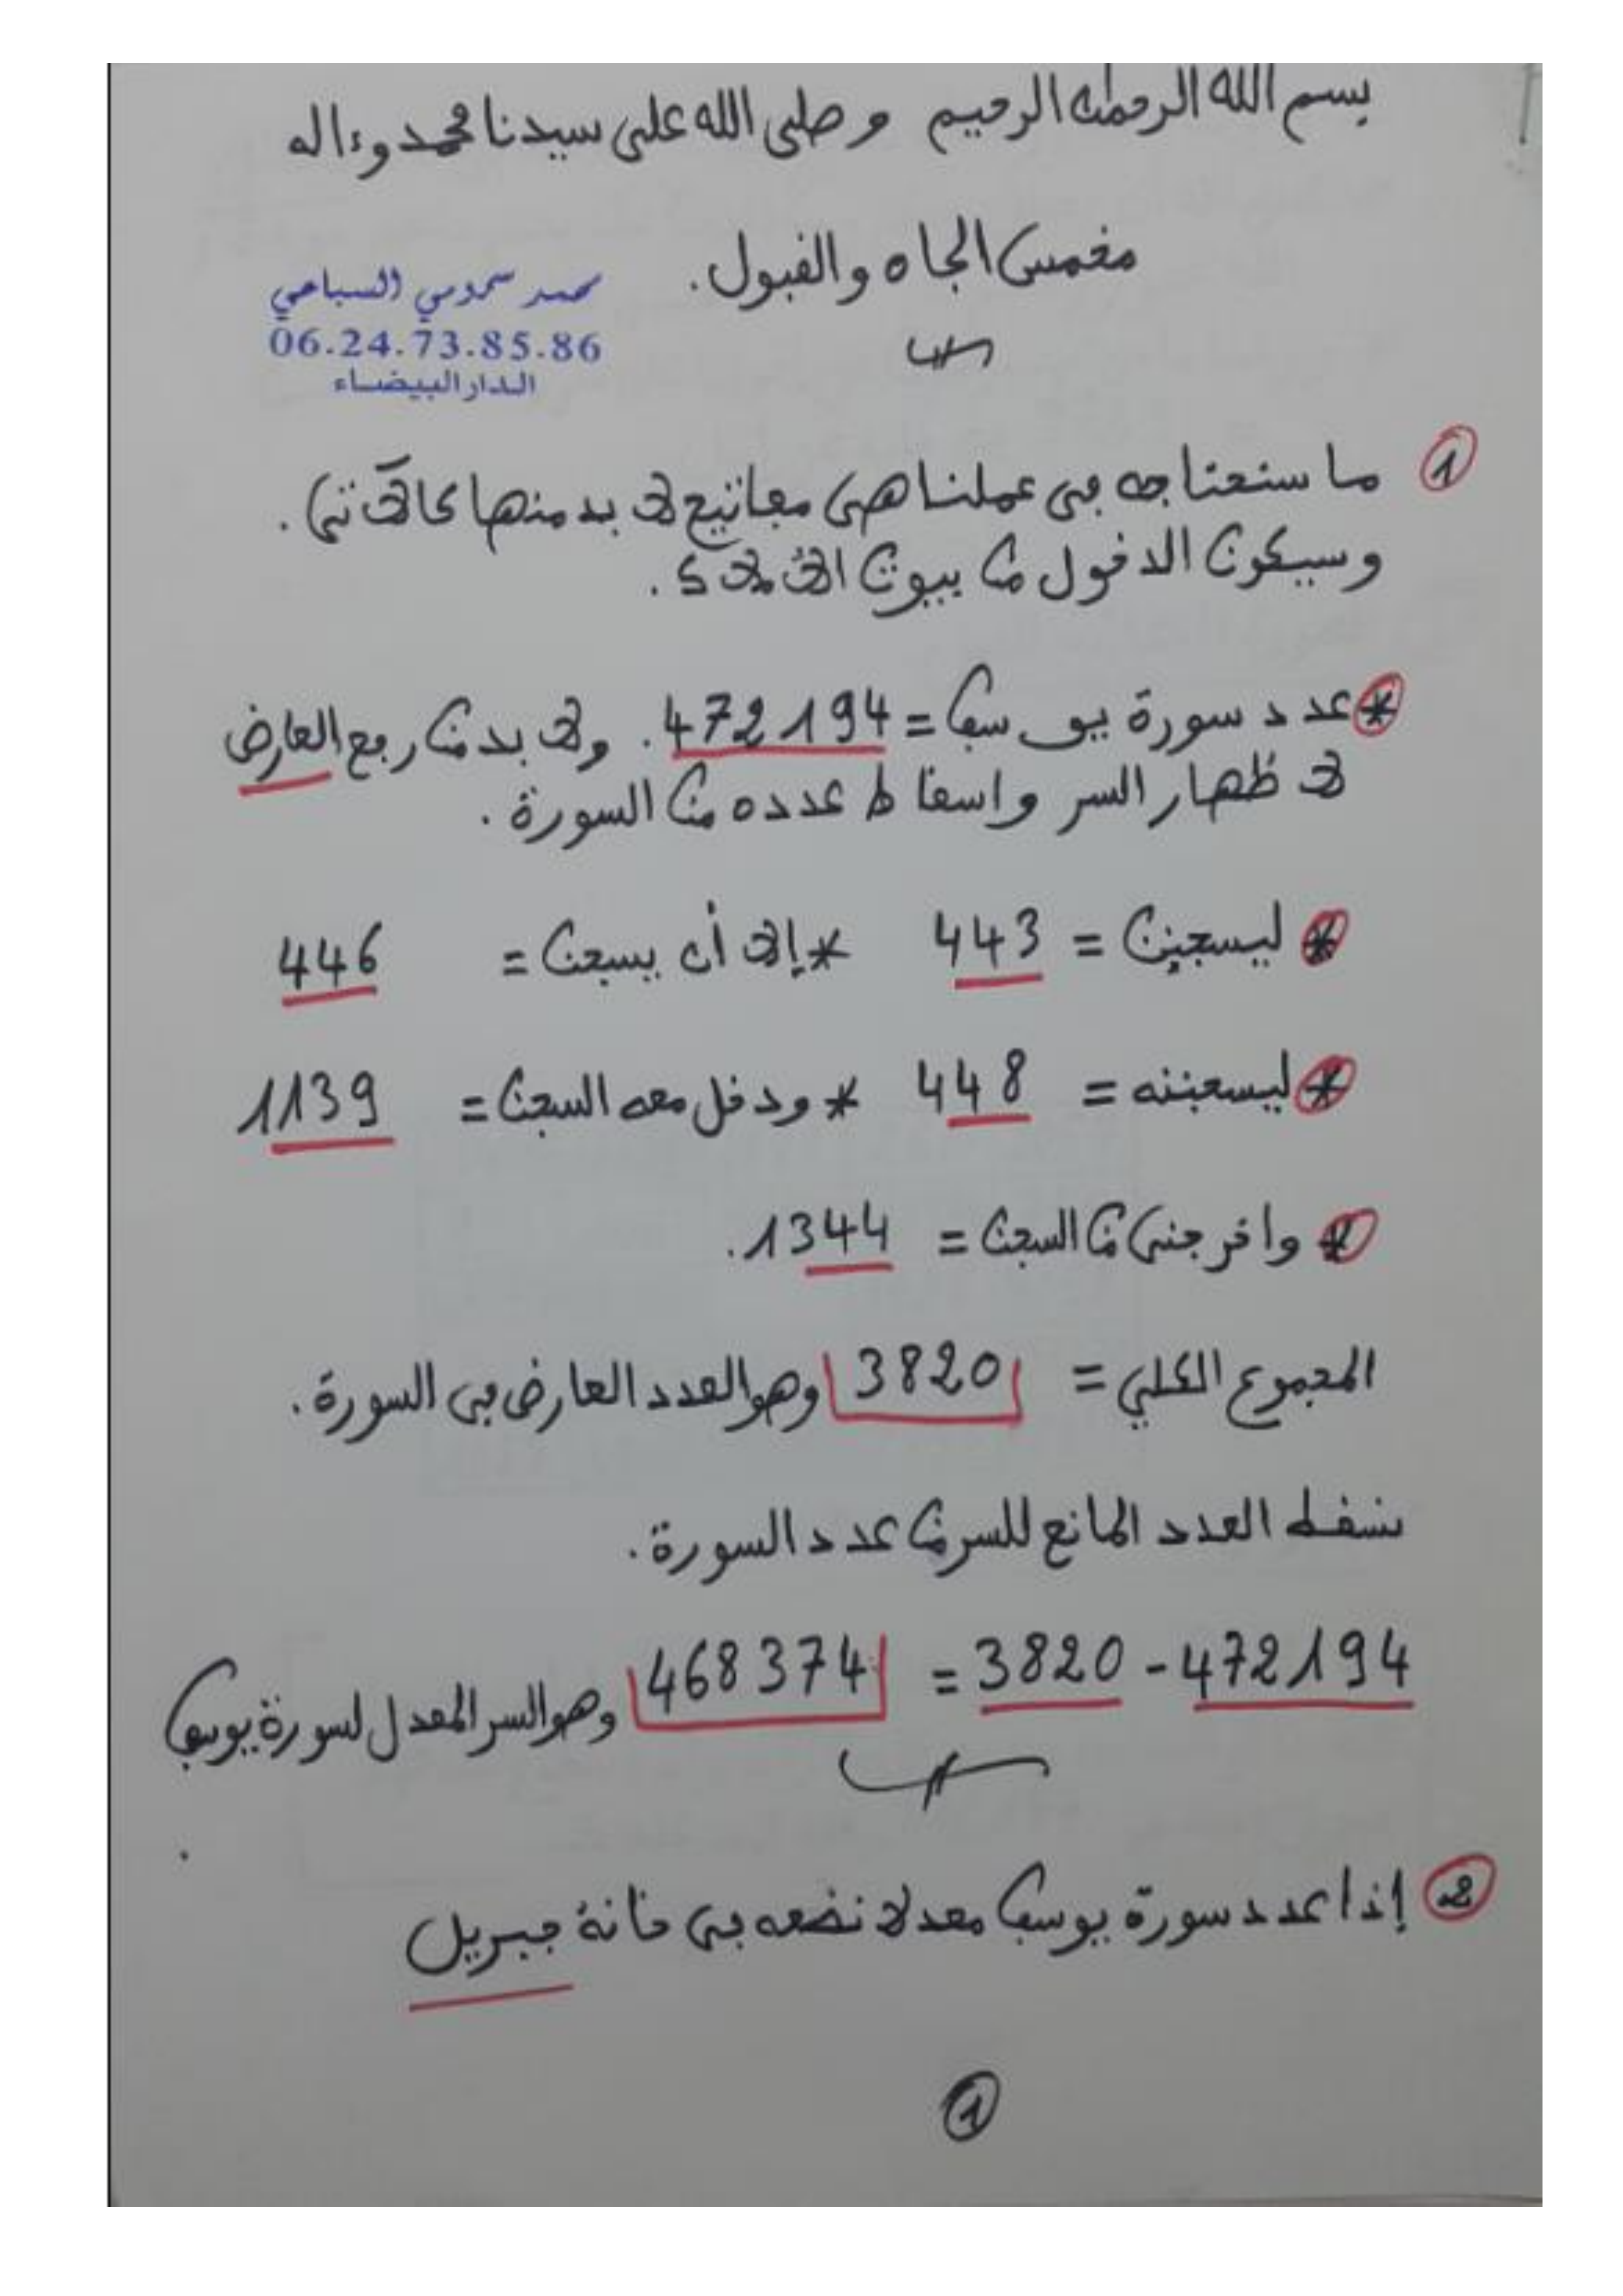 بسم الله الرحمان الرحيم وصلى الله على سيدنا محمد وءاله
مخمس الجاه والقبول.
محمد سمومي السباعي
06.24.73.85.86
الدار البيضاء
① ما سنحتاجه في عملنا هي مفاتيح لا بد منها كالآتي.
وسيكون الدخول من بيوت الأملاك.
* عدد سورة يوسف = 472194. ولا بد من رفع العارض
لاظهار السر واسقاط عدده من السورة.
* ليسجنن = 443 * إلا أن يسجن = 446
* ليسجننه = 448 * ودخل معه السجن = 1139
* واخرجني من السجن = 1344.
المجموع الكلي = 3820 وهو العدد العارض في السورة.
نسقط العدد المانع للسر من عدد السورة.
472194 - 3820 = 468374 وهو السر المعدل لسورة يوسف
.
② إذا عدد سورة يوسف معدلا نضعه في خانة جبريل
①